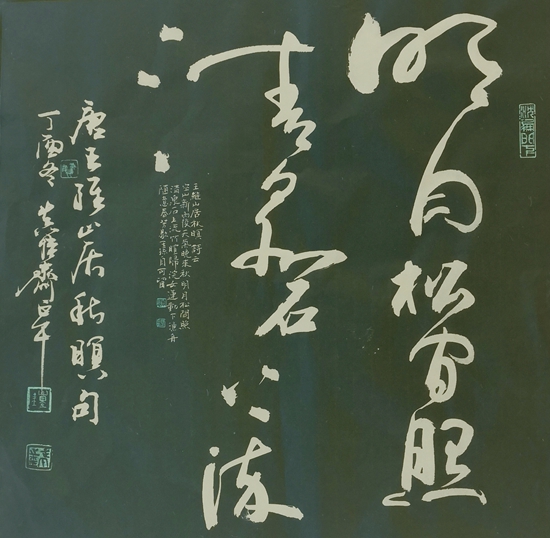 明月松间照
清泉石上流
王維山居秋暝詩云
空山新雨後天氣晚来秋明月松間照
清泉石上流竹喧歸浣女蓮動下漁舟
隨意春芳歇王孫自可留
唐王維山居秋暝句
丁酉冬